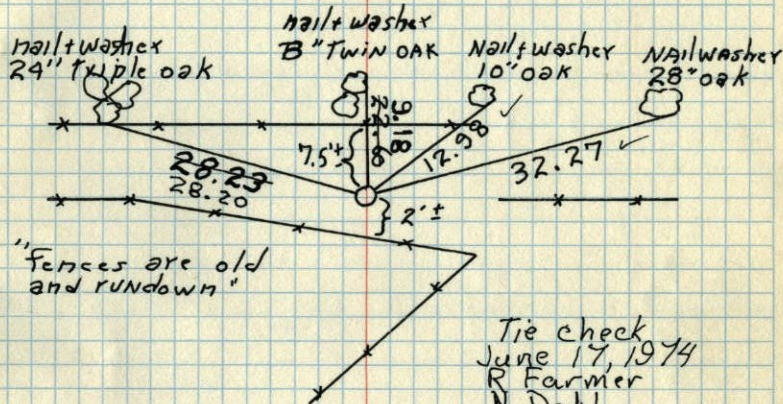 nail + washer
24" Triple oak
nail + washer
B" TWIN OAK
Nail + washer
10" oak
NAIL WASHER
28" oak
7.5'±
12.98
32.27
28.23
28.20
2'±
"fences are old
and rundown"
Tie check
June 17, 1974
R Farmer